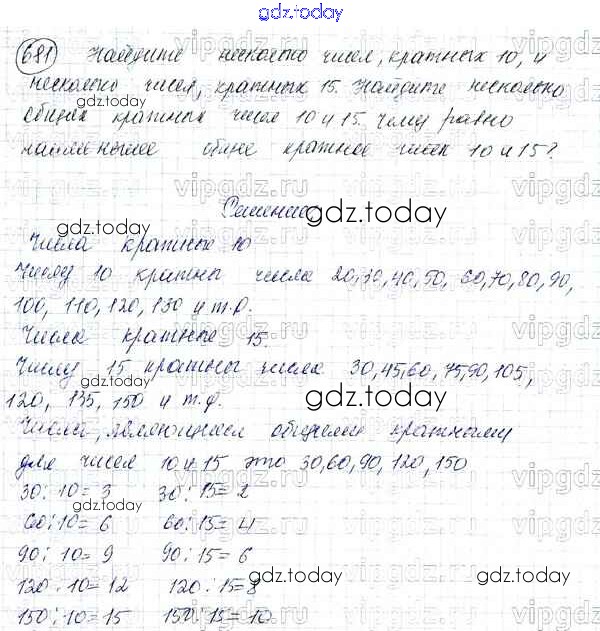 gdz.today
681 Найдите несколько чисел, кратных 10, и
несколько чисел, кратных 15. Найдите несколько
общих кратных чисел 10 и 15. Чему равно
наименьшее общее кратное чисел 10 и 15?
Решение
Числа кратные 10
Числу 10 кратны числа 20, 30, 40, 50, 60, 70, 80, 90,
100, 110, 120, 130 и т.д.
Числа кратные 15.
Числу 15 кратны числа 30, 45, 60, 75, 90, 105,
120, 135, 150 и т.д.
Числа, являющиеся общими кратными
для чисел 10 и 15 это 30, 60, 90, 120, 150
30 : 10 = 3 30 : 15 = 2
60 : 10 = 6 60 : 15 = 4
90 : 10 = 9 90 : 15 = 6
120 : 10 = 12 120 : 15 = 8
150 : 10 = 15 150 : 15 = 10
gdz.today
gdz.today
gdz.today
gdz.today
gdz.today
gdz.today
gdz.today
gdz.today
vipgdz.ru